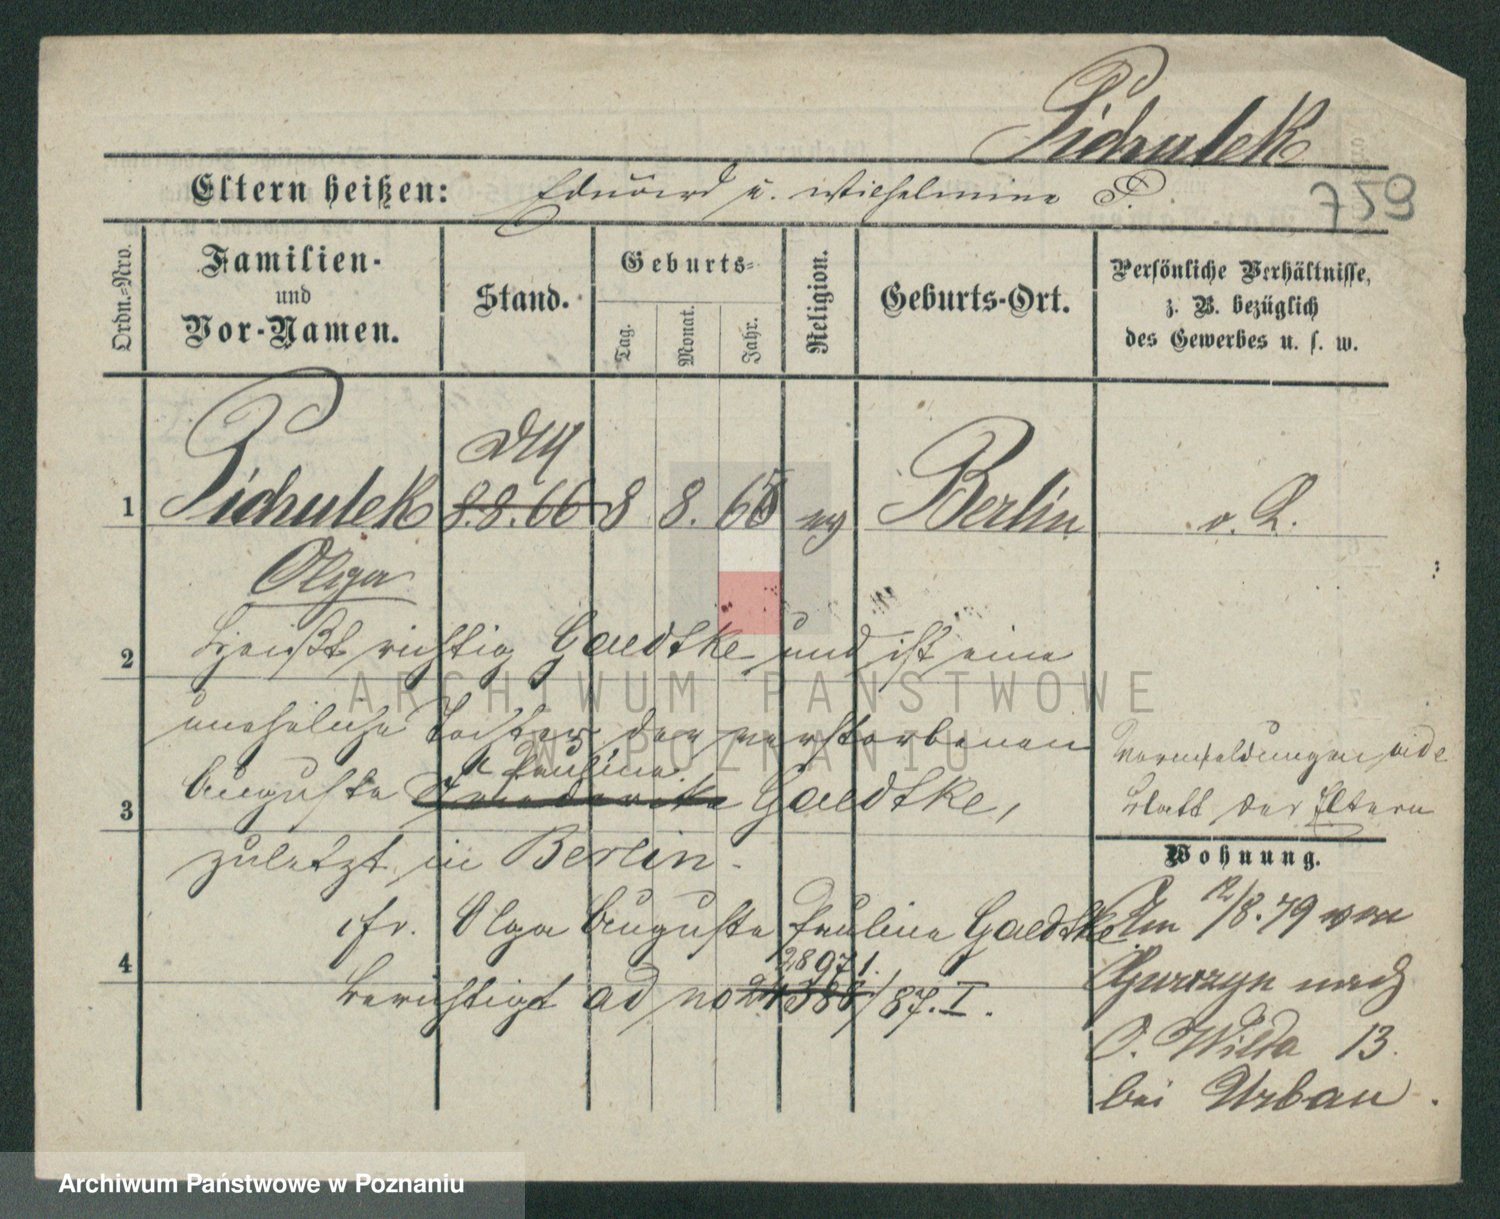 Pichulek
Eltern heißen: Eduard u. Wilhelmine P.
759
Ordn.-Nro.
Familien-
und
Vor-Namen.
Stand.
Geburts-
Tag.
Monat.
Jahr.
Religion.
Geburts-Ort.
Persönliche Verhältnisse,
z. B. bezüglich
des Gewerbes u. s. w.
1 Pichulek 8.8.66 8 8. 65 ev Berlin o. L.
Olga
2 heißt richtig Gaedtke und ist eine
uneheliche Tochter der verstorbenen
Pauline
3 Auguste Friederike Gaedtke,
zuletzt in Berlin.
Vermeldungen vide
Blatt der Eltern
Wohnung.
fr. Olga Auguste Pauline Gaedtke
4
28971.
berichtigt ad no 24386/87. I.
Am 12/8.79 von
Gurczyn nach
O. Wilda 13.
bei Urban.
ARCHIWUM PAŃSTWOWE
W POZNANIU
Archiwum Państwowe w Poznaniu